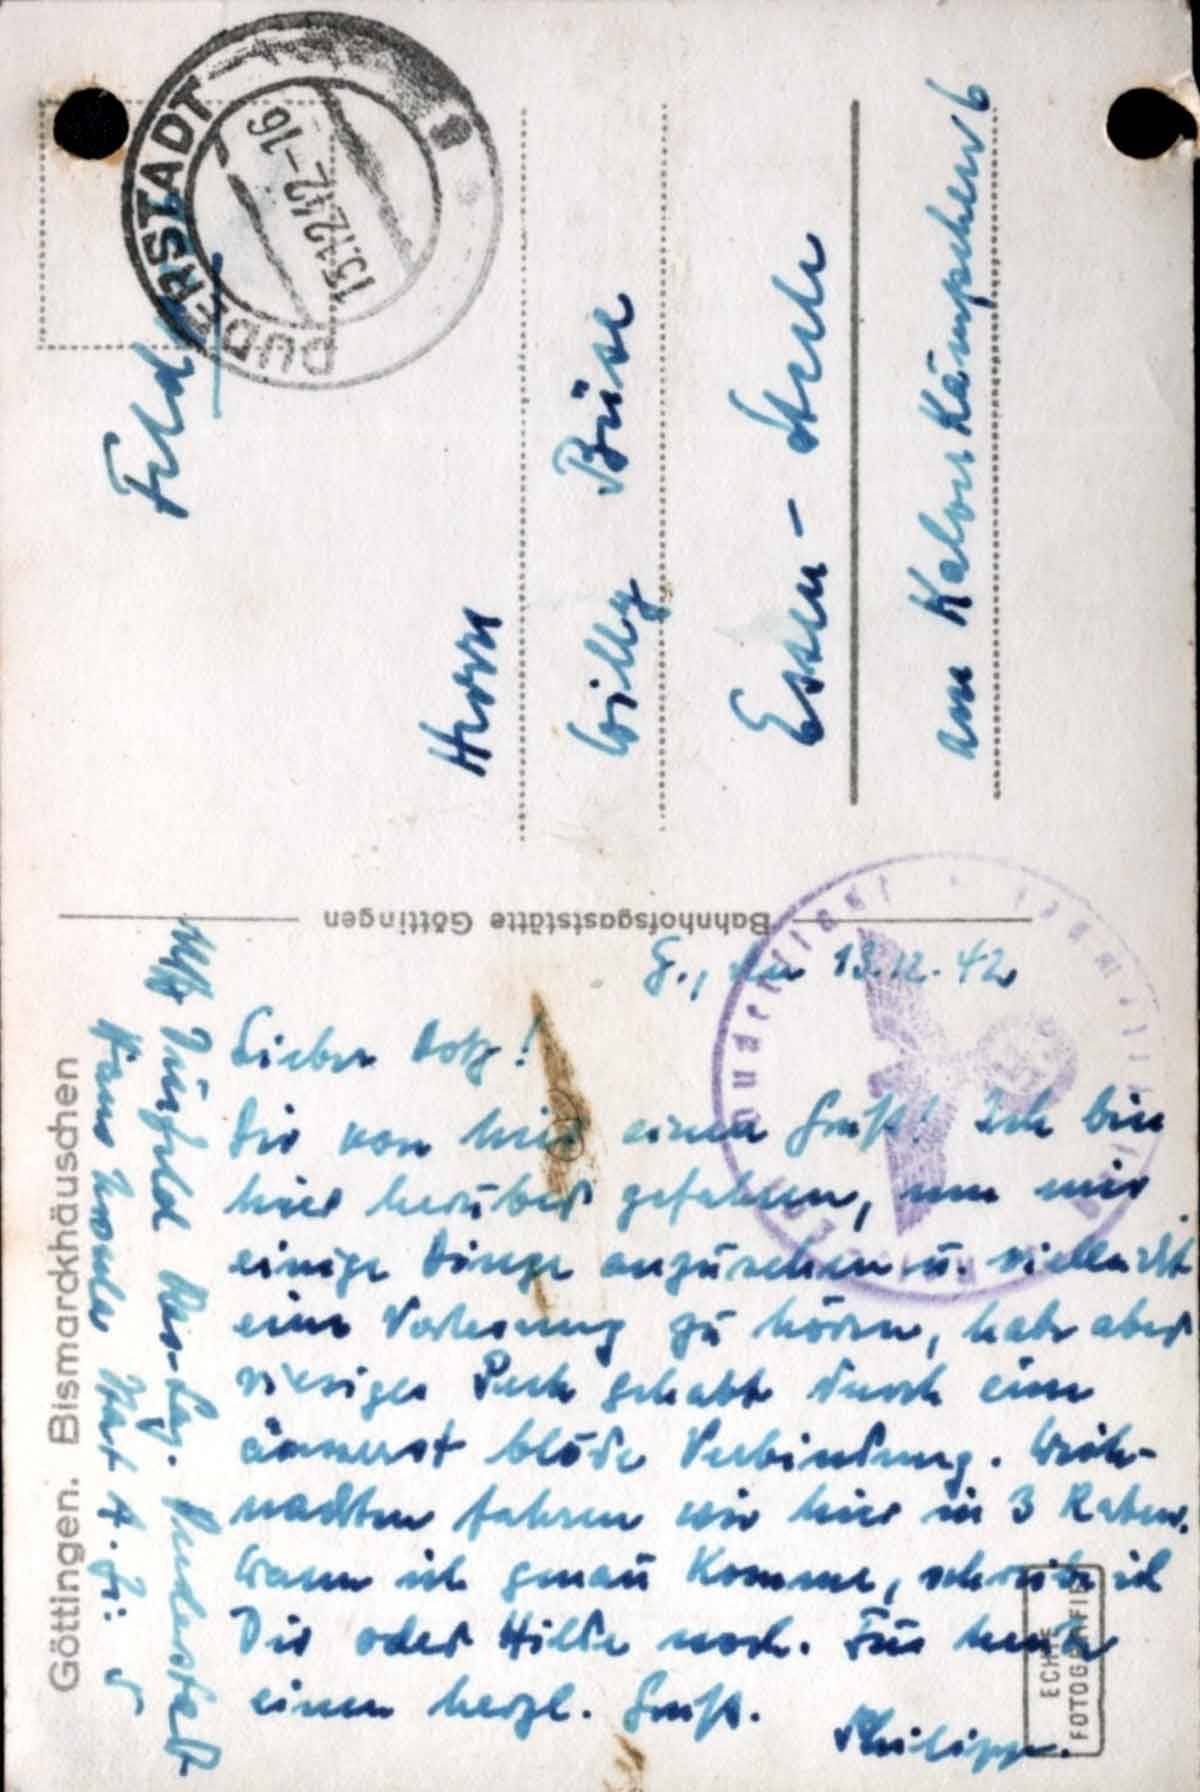 Feldpost
DUDERSTADT
15.12.42-16
Herrn
Willy Büse
Essen-Steele
am Kalversi Kämpchen 6
Bahnhofsgaststätte Göttingen
G., den 13.12.42
Lieber Lotz!
Dir von hier einen Gruß! Ich bin
hier herüber gefahren, um mir
einige Dinge anzusehen u. vielleicht
eine Vorlesung zu hören, habe aber
riesiges Pech gehabt durch eine
äusserst blöde Verbindung. Weih-
nachten fahren wir hier in 3 Raten.
Wann ich genau komme, schreibe ich
Dir oder Hilde noch. Für heute
einen herzl. Gruß.
Philipp.
Uffz. Res.-Laz. Duderstadt
Göttingen. Bismarckhäuschen
ECHTE
FOTOGRAFIE